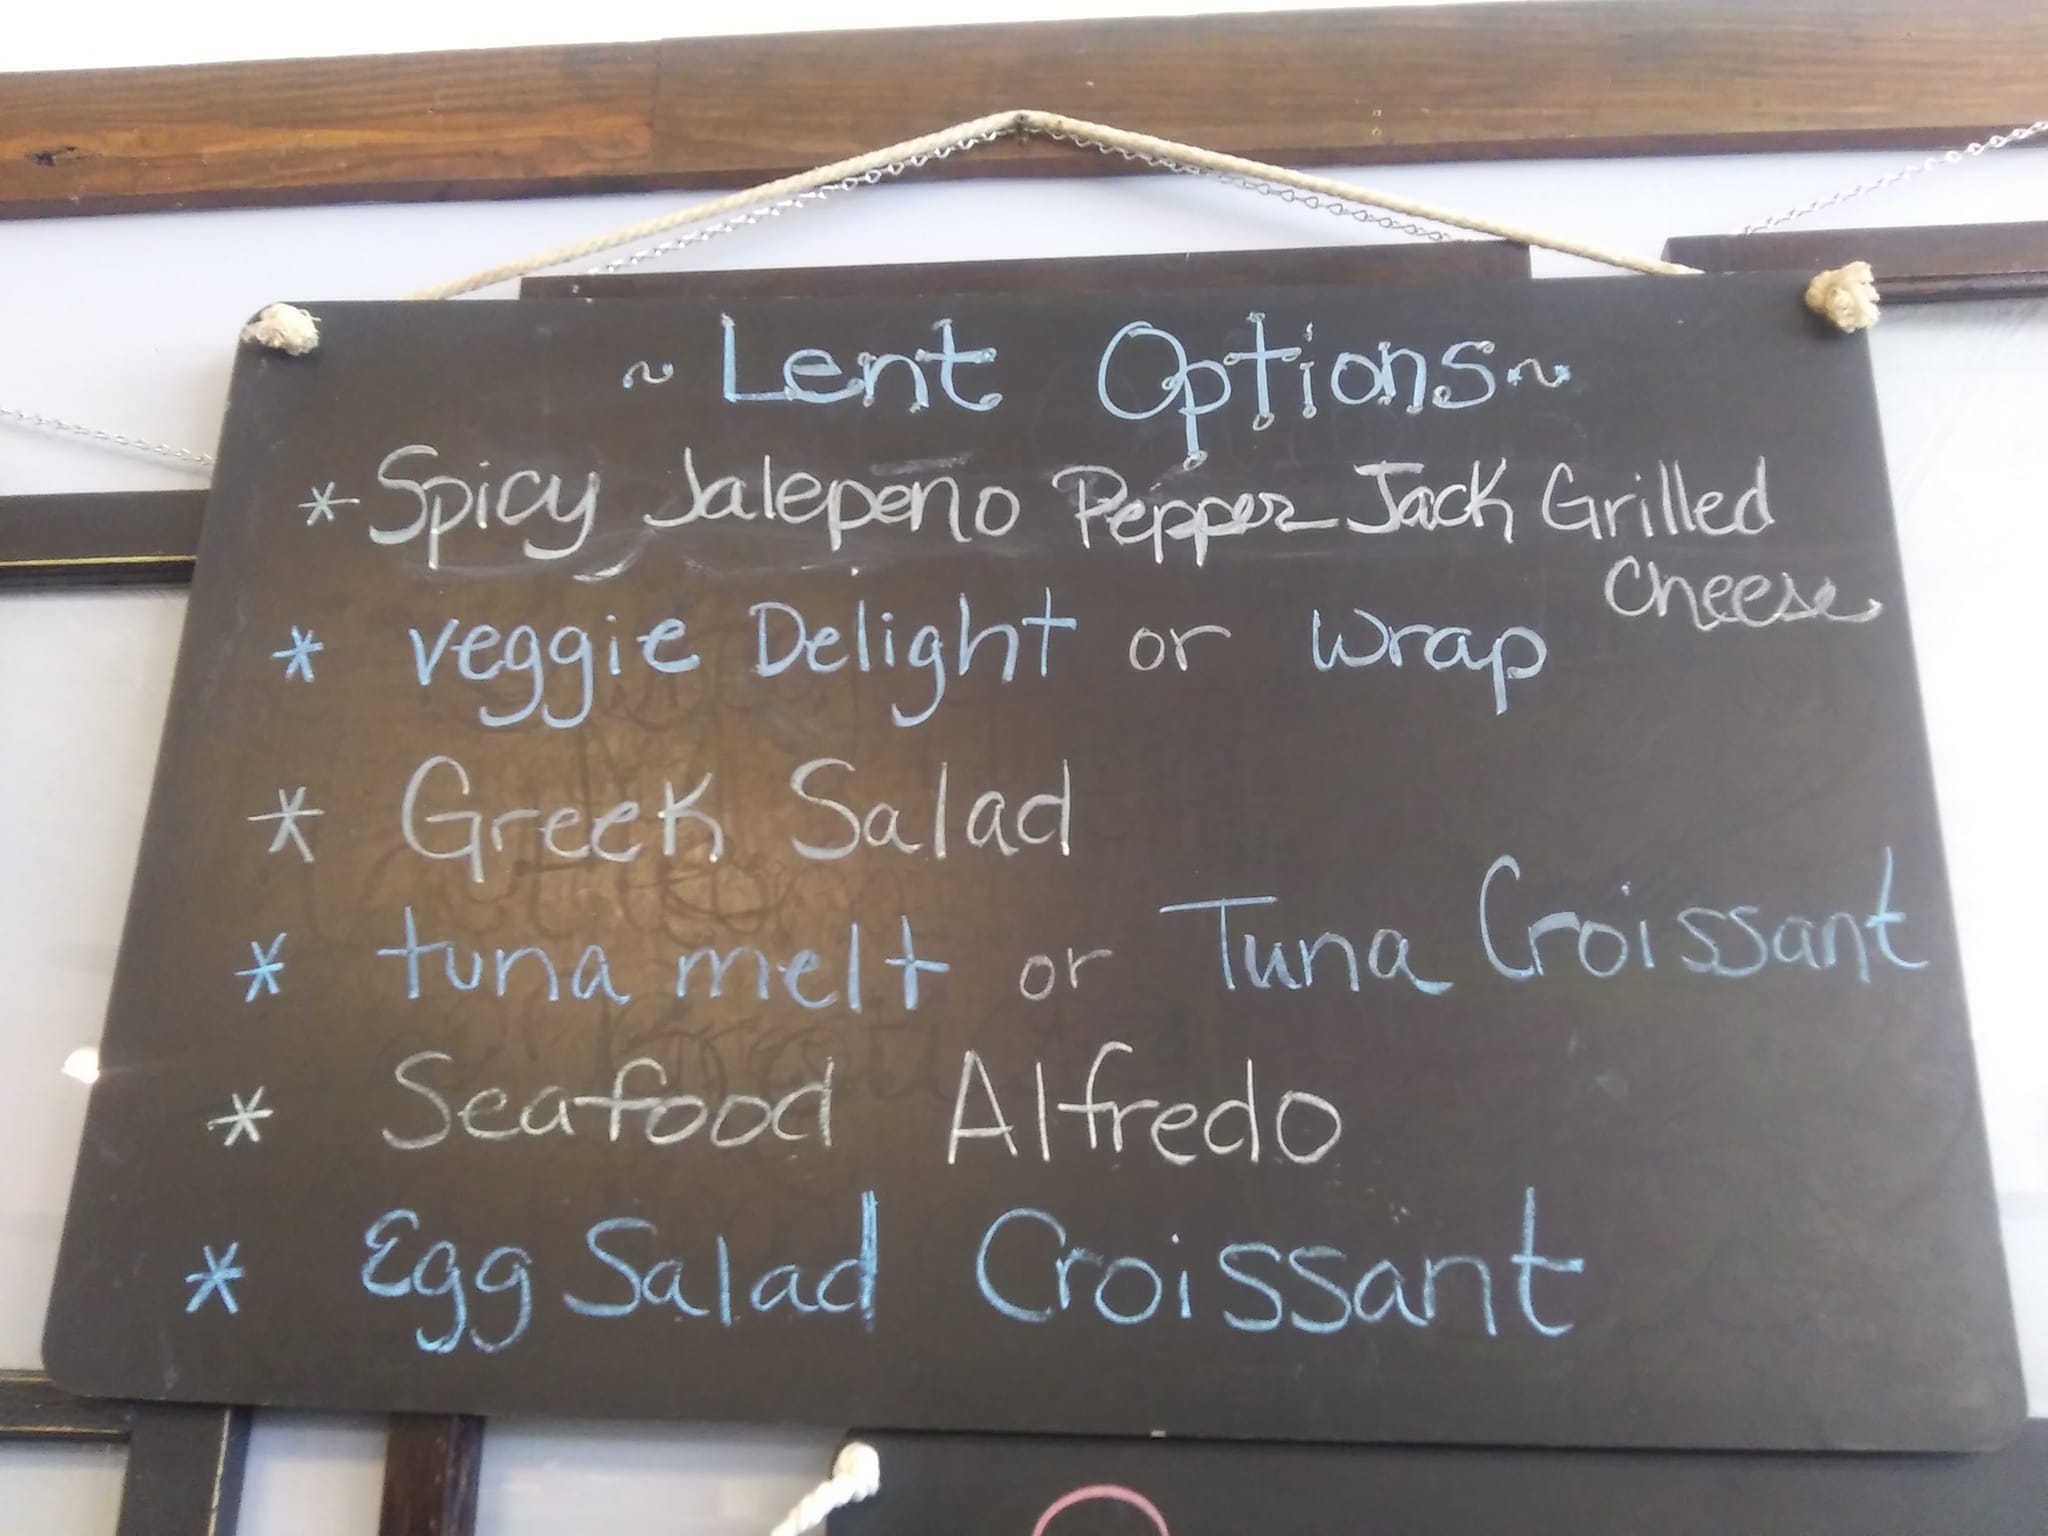 ~ Lent Options ~
* Spicy Jalepeno Pepper Jack Grilled
Cheese
* veggie Delight or wrap
* Greek Salad
* tuna melt or Tuna Croissant
* Seafood Alfredo
* Egg Salad Croissant